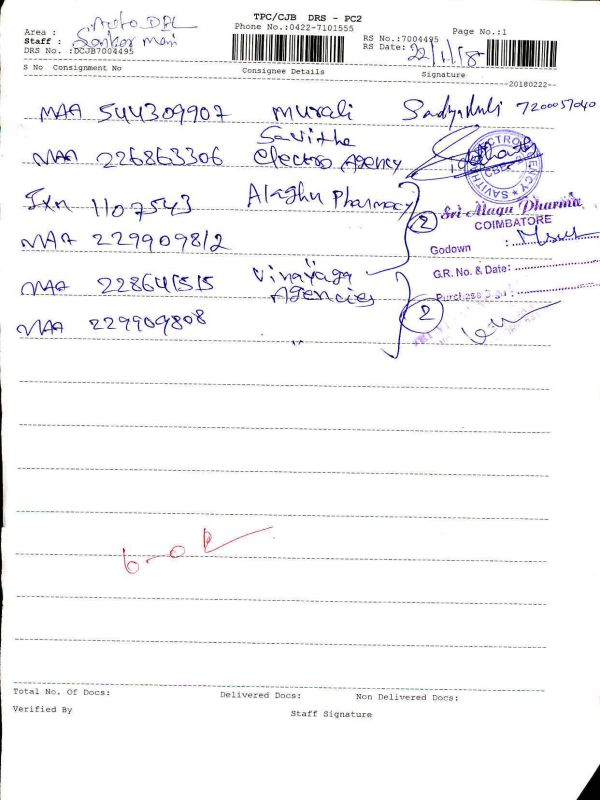 TPC/CJB DRS - PC2
Phone No.:0422-7101555
Area : Auto DPL
Staff : Sankar Mani
DRS No. :DCJB7004495
RS No.:7004495
Page No.:1
RS Date: 22/1/18
S No Consignment No Consignee Details Signature
20180222
MAA 544309907 Murali 7200057040
MAA 226863306 Savitha Electro Agency
1107543 Alaghu Pharmacy
MAA 229909812 2
MAA 228641515 Vinayaga Agencies
MAA 229909808 2
Sri Alagu Pharma
COIMBATORE
Godown :
G.R. No. & Date:
Total No. Of Docs: Delivered Docs: Non Delivered Docs:
Verified By Staff Signature